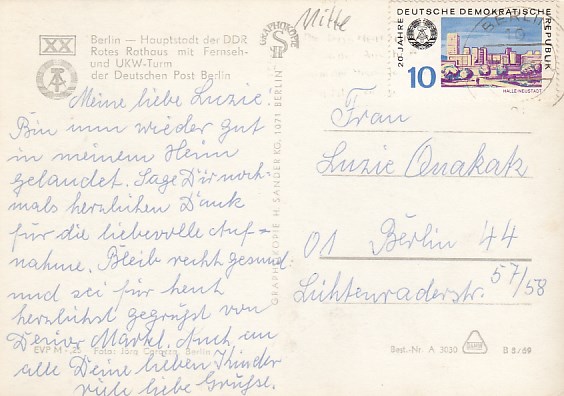 Mitte
XX
Berlin — Hauptstadt der DDR
Rotes Rathaus mit Fernseh-
und UKW-Turm
der Deutschen Post Berlin
Meine liebe Luzie.
Bin nun wieder gut
in meinem Heim
gelandet. Sage Dir noch-
mals herzlichen Dank
für die liebevolle Auf-
nahme. Bleib recht gesund
und sei für heut
herzlichst gegrüßt von
Deiner Märkl. Auch an
alle Deine lieben Kinder
viele liebe Grüsse.
EVP M -.25 Foto: Jörg Berlin
GRAPHOKOPIE
SH
GRAPHOKOPIE H. SANDER KG, 1071 BERLIN
20 JAHRE DEUTSCHE DEMOKRATISCHE REPUBLIK
10
HALLE-NEUSTADT
BERLIN
Frau
Luzie Quakatz
01 Berlin 44
Lichtenraderstr. 57/58
Best.-Nr. A 3030
B 5/69